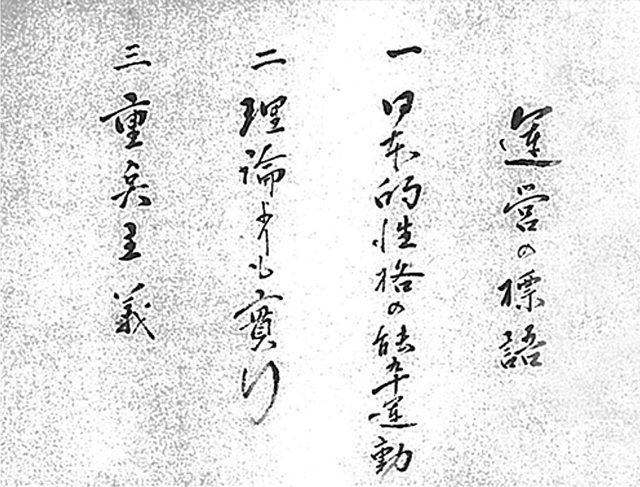 運営の標語
一 日本的性格の能率運動
二 理論よりも實行
三 重兵主義